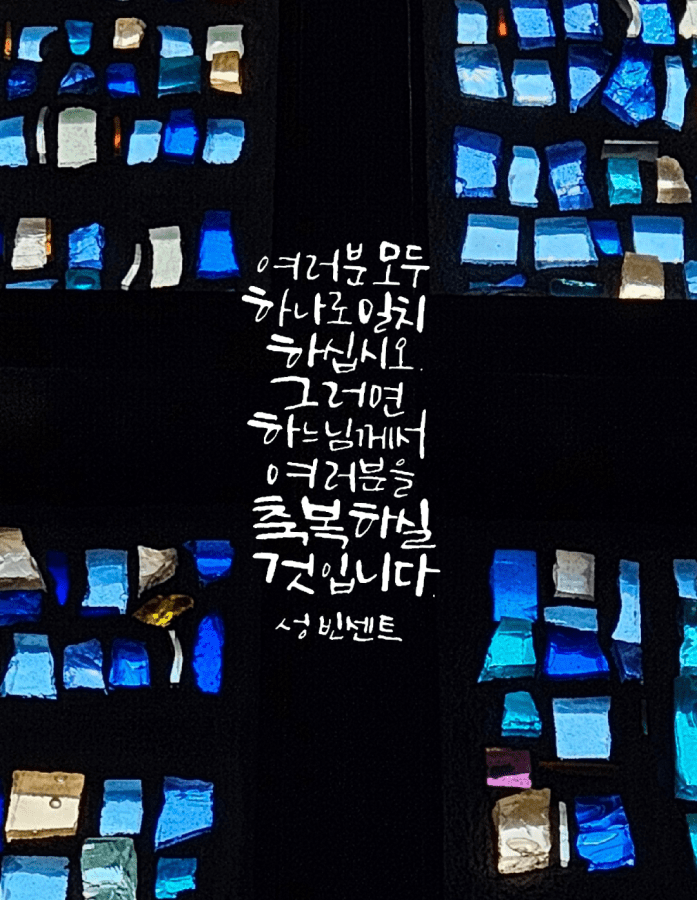 여러분 모두
하나로 일치
하십시오.
그러면
하느님께서
여러분을
축복하실
것입니다.
성 빈센트